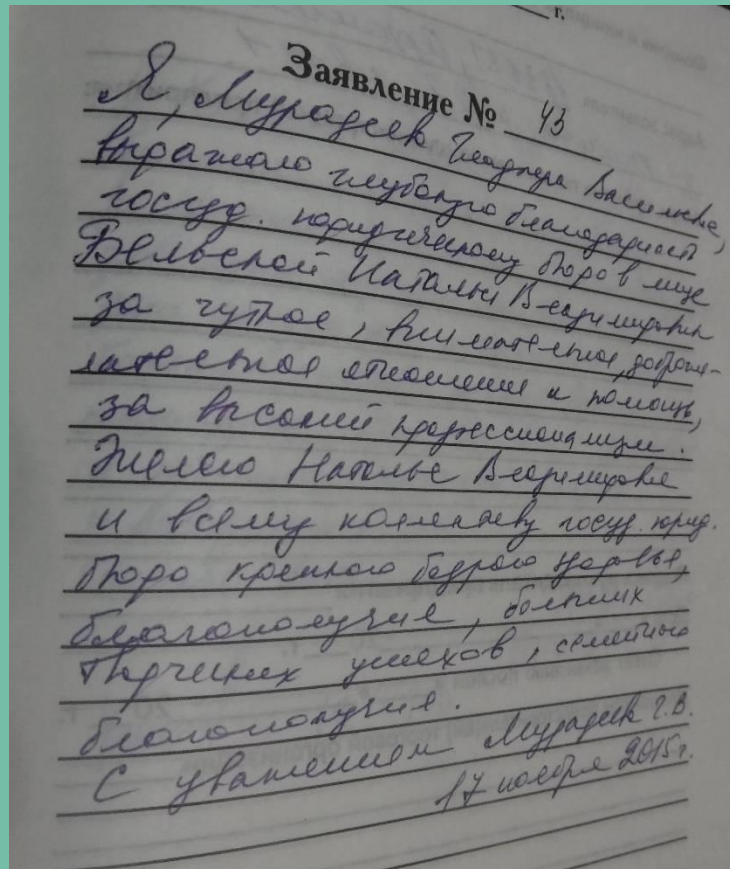 г.
Заявление № 43
Я, Мурадеев Геннадий Васильевич,
выражаю глубокую благодарность
госуд. юридическому бюро в лице
Бельской Натальи Владимировны
за чуткое, внимательное, доброже-
лательное отношение и помощь,
за высокий профессионализм.
Желаю Наталье Владимировне
и всему коллективу госуд. юрид.
бюро крепкого бодрого здоровья,
благополучия, больших
творческих успехов, семейного
благополучия.
С уважением Мурадеев Г.В.
17 ноября 2015г.